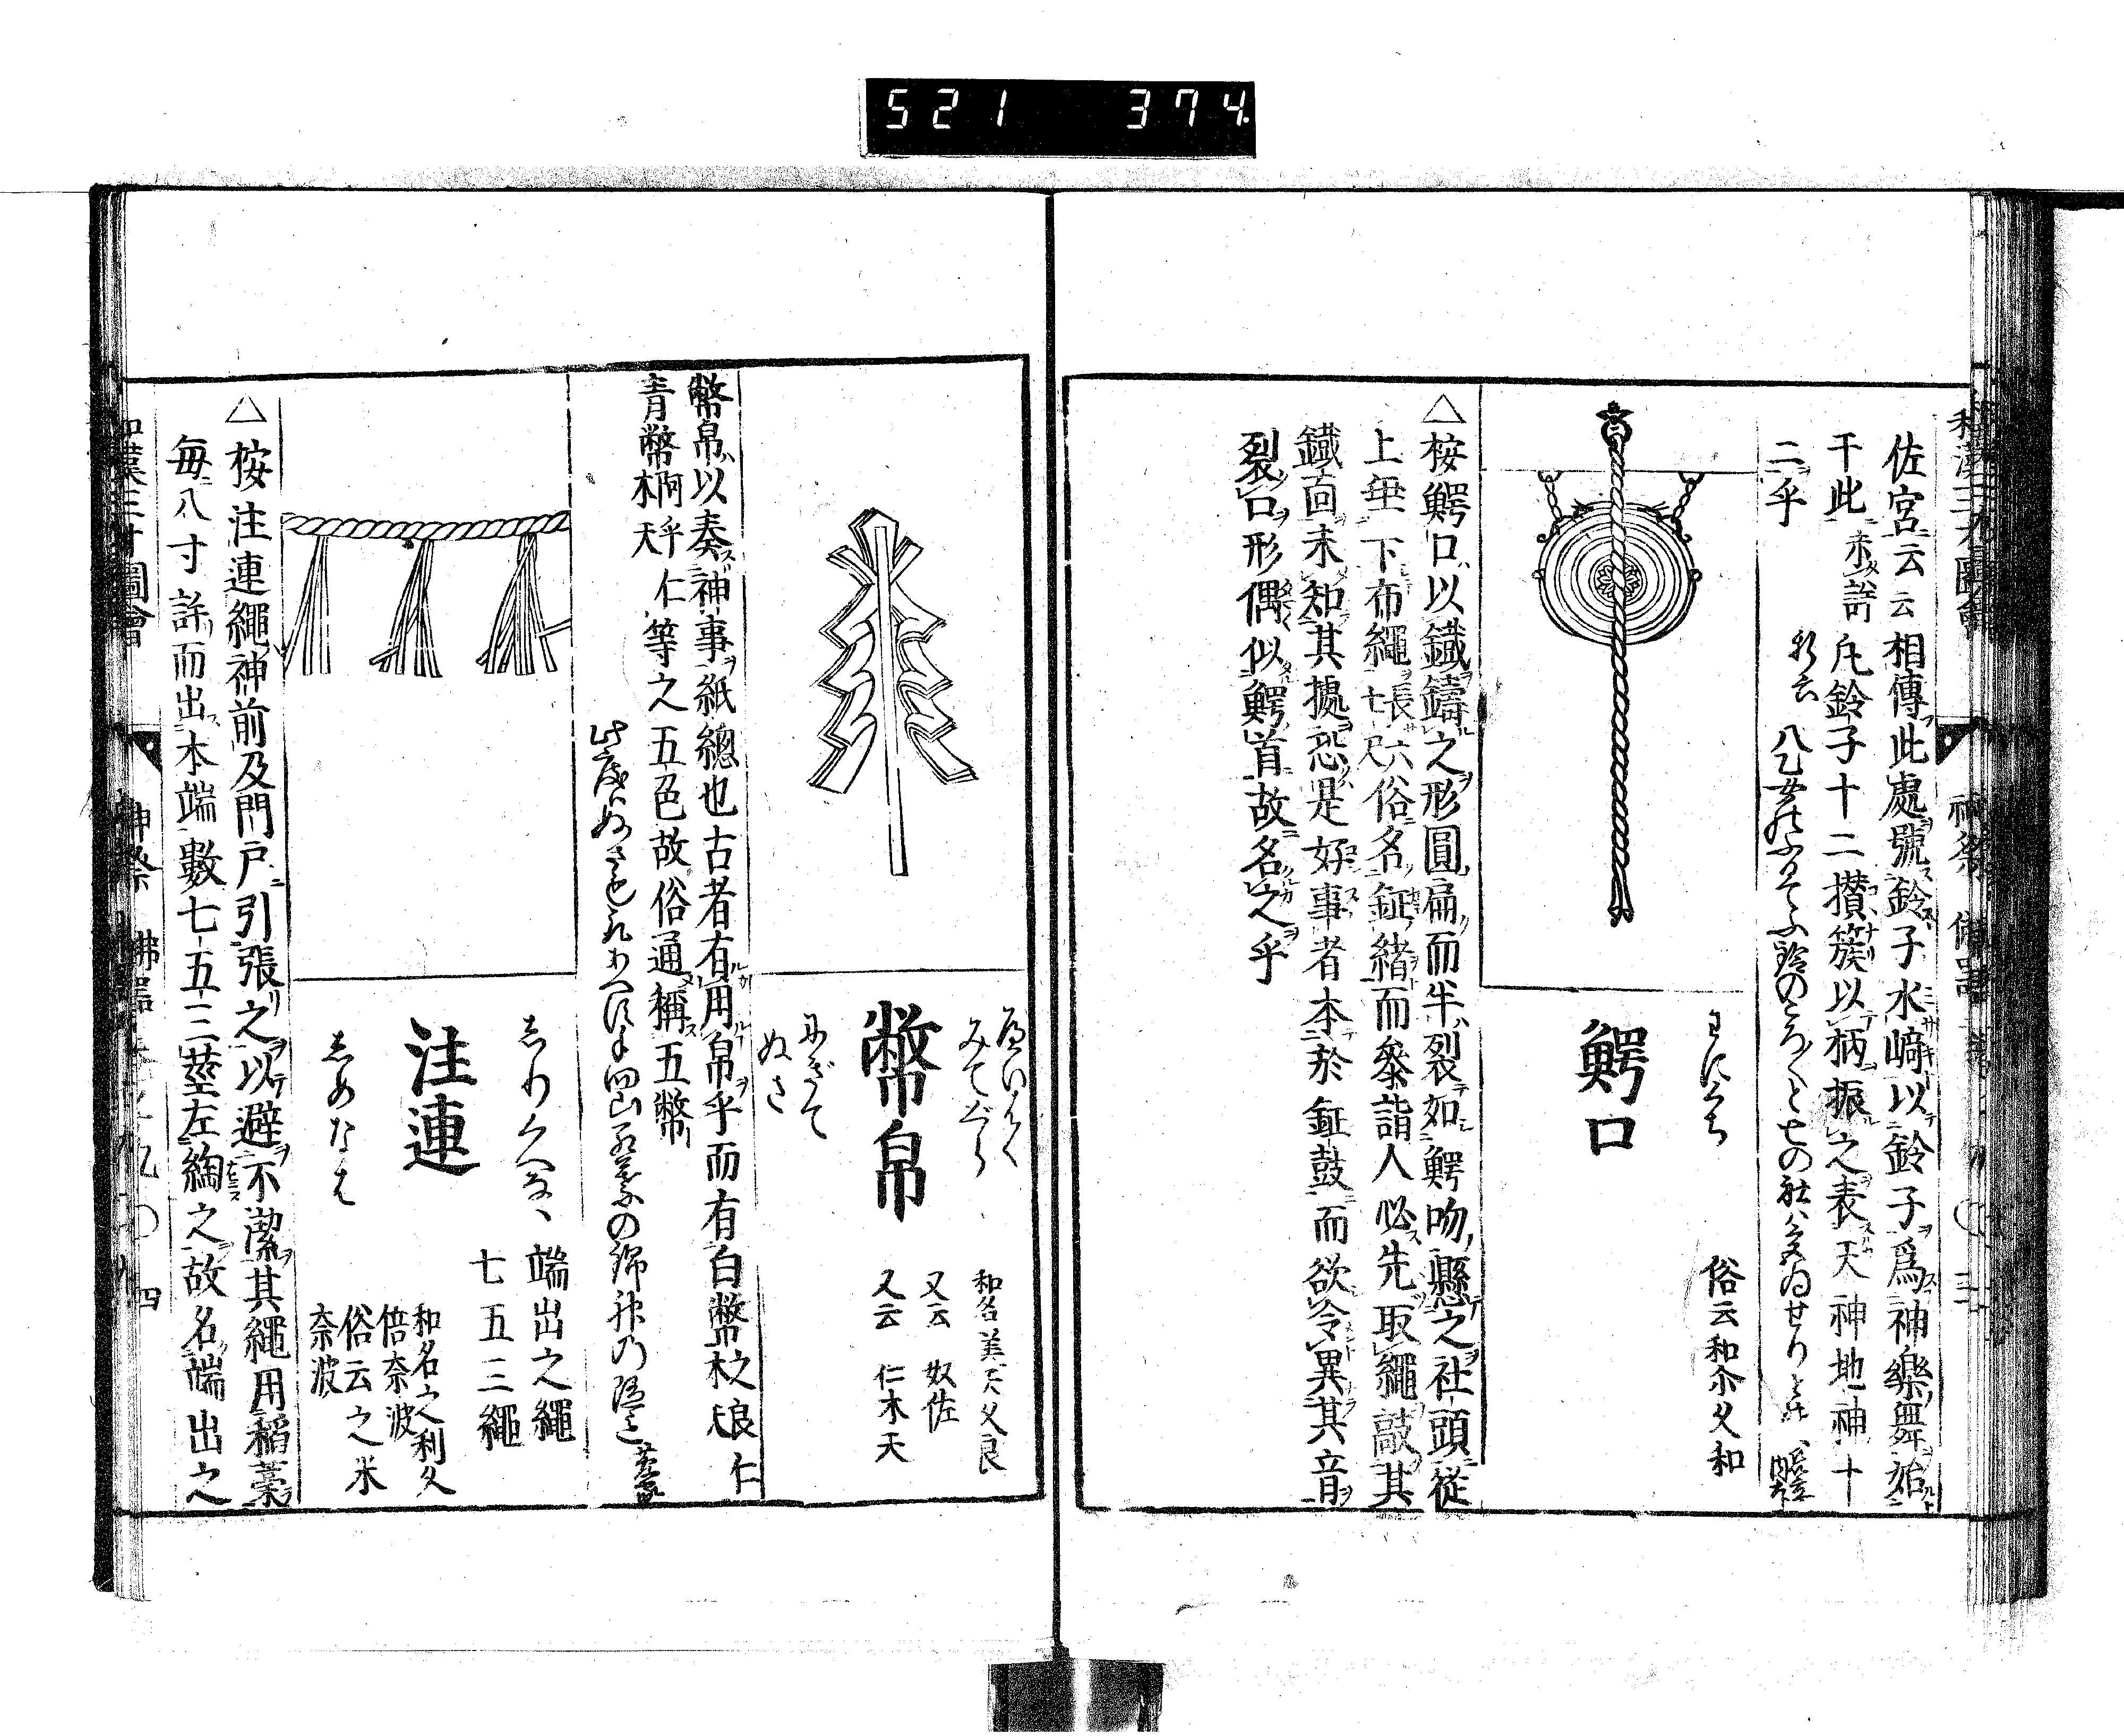 521 374
佐宮云云相傳此處號鈴子水﨑以鈴子爲神樂舞始
于此未詳凡鈴子十二攅簇以柄振之表天神地神十
二乎
鰐口
わにくち
俗云和尒久和
△按鰐口以鐵鑄之形圓扁而半裂如鰐吻懸之社頭從
上垂下布繩長六七尺俗名鉦緒而參詣人必先取繩敲其
鐵面未知其據恐是好事者本於鉦鼓而欲令異其音
裂口形偶似鰐首故名之乎
幣帛
へいはく
みてぐら
にぎて
ぬさ
和名美天久良
又云奴佐
又云仁木天
幣帛以奏神事紙總也古者有用帛乎而有白幣之良仁木天
青幣阿乎仁木天等之五色故俗通稱五幣
注連
しりくへなは
しめなは
端出之繩
七五三繩
和名之利久
倍奈波
俗云之米
奈波
△按注連繩神前及門戸引張之以避不潔其繩用稻藁
毎八寸許而出本端數七五三莖左綯之故名端出之
和漢三才圖會
神祭 佛噐